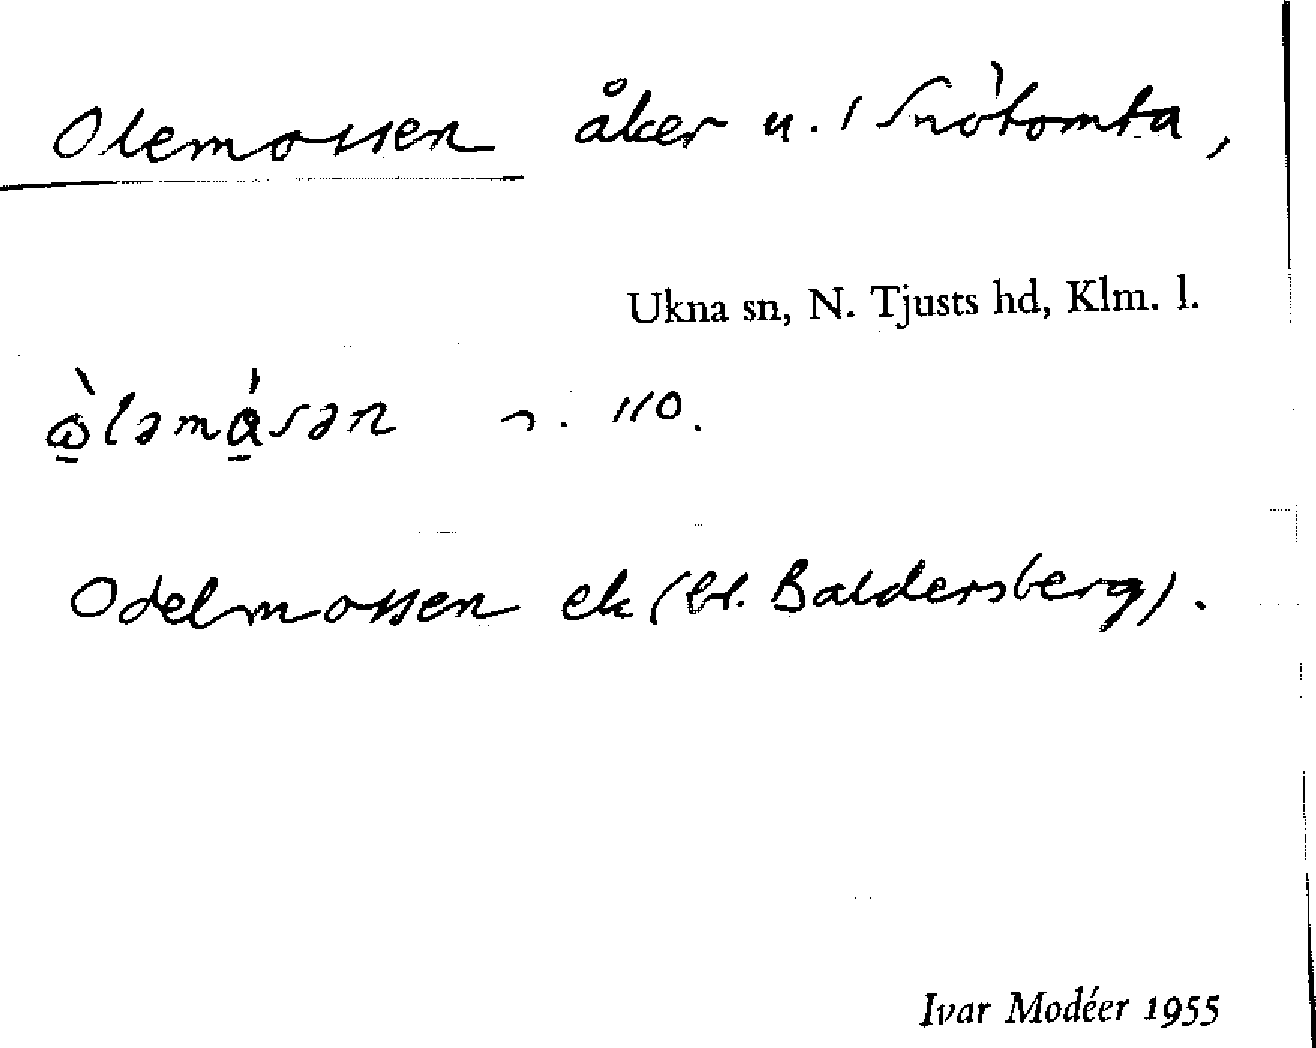 Olemossen åker u. 1 Snötomta,
Ukna sn, N. Tjusts hd, Klm. l.
n. 110.
Odelmossen ek (bl. Baldersberg).
Ivar Modéer 1955